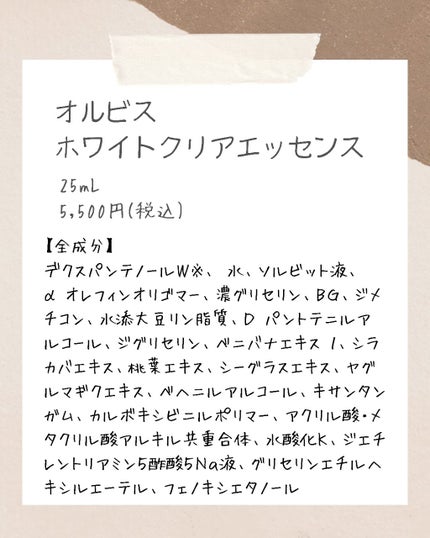 オルビス
ホワイトクリアエッセンス
25mL
5,500円(税込)
【全成分】
デクスパンテノールW※、 水、ソルビット液、
α オレフィンオリゴマー、濃グリセリン、BG、ジメ
チコン、水添大豆リン脂質、D パントテニルア
ルコール、ジグリセリン、ベニバナエキス 1、シラ
カバエキス、桃葉エキス、シーグラスエキス、ヤグ
ルマギクエキス、ベヘニルアルコール、キサンタン
ガム、カルボキシビニルポリマー、アクリル酸・メ
タクリル酸アルキル共重合体、水酸化K、ジエチ
レントリアミン5酢酸5Na液、グリセリンエチルヘ
キシルエーテル、フェノキシエタノール